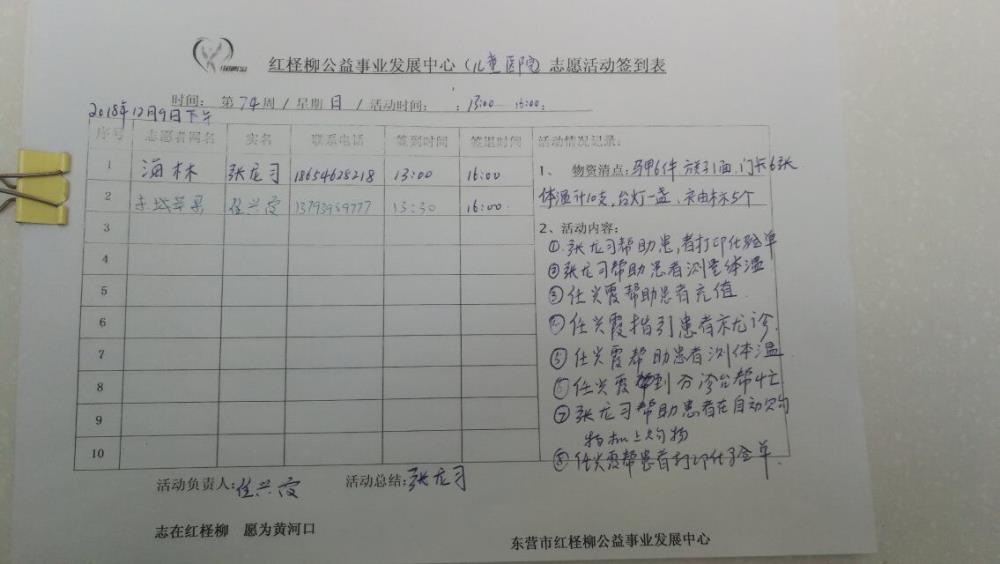 红柽柳公益事业发展中心（儿童医院）志愿活动签到表
时间： 第 74 周 / 星期 日 / 活动时间： ：13:00 — 16:00：
2018年12月9日下午
序号 志愿者网名 实名 联系电话 签到时间 签退时间 活动情况记录：
1 海林 张龙习 18654628218 13:00 16:00
2 任兴霞 13:30 16:00
3
4
5
6
7
8
9
10
1、 物资清点：马甲6件 旗子1面、门卡6张
体温计10支，台灯一盏、 5个
2、活动内容：
①、张龙习帮助患者打印化验单
②张龙习帮助患者测量体温
③任兴霞帮助患者充值
④任兴霞指引患者就诊
⑤任兴霞帮助患者测体温
⑥任兴霞到分诊台帮忙
⑦张龙习帮助患者在自动
物机上购物
⑧任兴霞帮患者打印化验单
活动负责人：任兴霞 活动总结：张龙习
志在红柽柳 愿为黄河口
东营市红柽柳公益事业发展中心